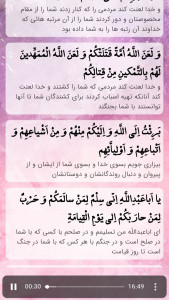 و خدا لعنت کند مردمی که کنار زدند شما را از مقام
مخصوصتان و دور کردند شما را از آن مرتبه هائی که
خداوند آن رتبه ها را به شما داده بود
وَ لَعَنَ اللَّهُ أُمَّةً قَتَلَتْكُمْ وَ لَعَنَ اللَّهُ الْمُمَهِّدِينَ
لَهُمْ بِالتَّمْكِينِ مِنْ قِتَالِكُمْ
و خدا لعنت کند مردمی که شما را کشتند و خدا لعنت
کند آنانکه تهیه اسباب کردند برای کشندگان شما تا آنها
توانستند با شما بجنگند
بَرِئْتُ إِلَى اللَّهِ وَ إِلَيْكُمْ مِنْهُمْ وَ مِنْ أَشْيَاعِهِمْ وَ
أَتْبَاعِهِمْ وَ أَوْلِيَائِهِمْ
بیزاری جویم بسوی خدا و بسوی شما از ایشان و از
پیروان و دنبال روندگانشان و دوستانشان
يَا أَبَا عَبْدِ اللَّهِ إِنِّي سِلْمٌ لِمَنْ سَالَمَكُمْ وَ حَرْبٌ
لِمَنْ حَارَبَكُمْ إِلَى يَوْمِ الْقِيَامَةِ
ای اباعبدالله من تسلیمم و در صلحم با کسی که با شما
در صلح است و در جنگم با هر کس که با شما در جنگ
است تا روز قیامت
00:30 16:49